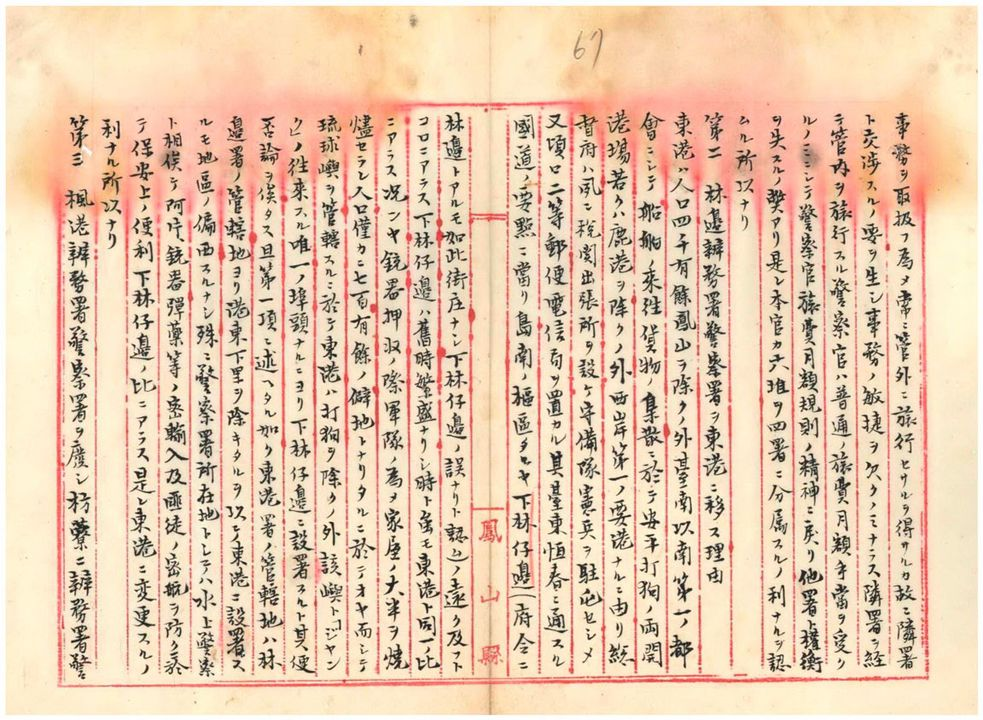 67
事務ヲ取扱フ為メ常ニ管外ニ旅行セサルヲ得サルカ故ニ隣署
ト交渉スルノ要ヲ生シ事務ノ敏捷ヲ欠クノミナラス隣署ヲ経
テ管内ヲ旅行スル警察官ハ普通ノ旅費月額手當ヲ受ク
ルノミニシテ警察官旅費月額規則ノ精神ニ戻リ他署ト権衡
ヲ失スルノ弊アリ是レ本官カ六堆ヲ四署ニ分属スルノ利ナルヲ認
ムル所以ナリ
第二 林邊辨務署警察署ヲ東港ニ移ス理由
東港ハ人口四千有餘鳳山ヲ除クノ外臺南以南第一ノ都
會ニシテ船舶ノ来往貨物ノ集散ニ於テ安平打狗ノ両開
港場若クハ鹿港ヲ除クノ外西岸第一ノ要港ナルニ由リ総
督府ハ夙ニ税関出張所ヲ設ケ守備隊憲兵ヲ駐屯セシメ
又頃ロ二等郵便電信局ヲ置カル其臺東恒春ニ通スル
國道ノ要點ニ當リ島南ノ樞區タルヤ下林仔邊(府令ニ
鳳山縣
林邊トアルモ如此街庄ナシ下林仔邊ノ誤ナリト認ム)ノ遠ク及フト
コロニアラス下林仔邊ハ舊時繁盛ナリシ時ト虽モ東港ト同一ノ比
ニアラス况ンヤ銃器押収ノ際軍隊ノ為メ家屋ノ大半ヲ焼
燼セラレ人口僅カニ七百有餘ノ僻地トナリタルニ於テオヤ而シテ
琉球嶼ヲ管轄スルニ於テ東港ハ打狗ヲ除クノ外該嶼トコジヤン
クノ往来スル唯一ノ埠頭ナルニヨリ下林仔邊ニ設署スルト其便
否論ヲ俟タス且第一項ニ述ヘタル如ク東港署ノ管轄地ハ林
邊署ノ管轄地ヨリ港東下里ヲ除キタルヲ以テ東港ニ設署ス
ルモ地區ノ偏西スルナシ殊ニ警察署所在地トシテハ水上警察
ト相俟テ阿片銃器彈藥等ノ密輸入及匪徒ノ密航ヲ防クニ於
テ保安上ノ便利下林仔邊ノ比ニアラス是レ東港ニ変更スルノ
利ナル所以ナリ
第三 楓港辨務署警察署ヲ廢シ枋藔ニ辨務署警